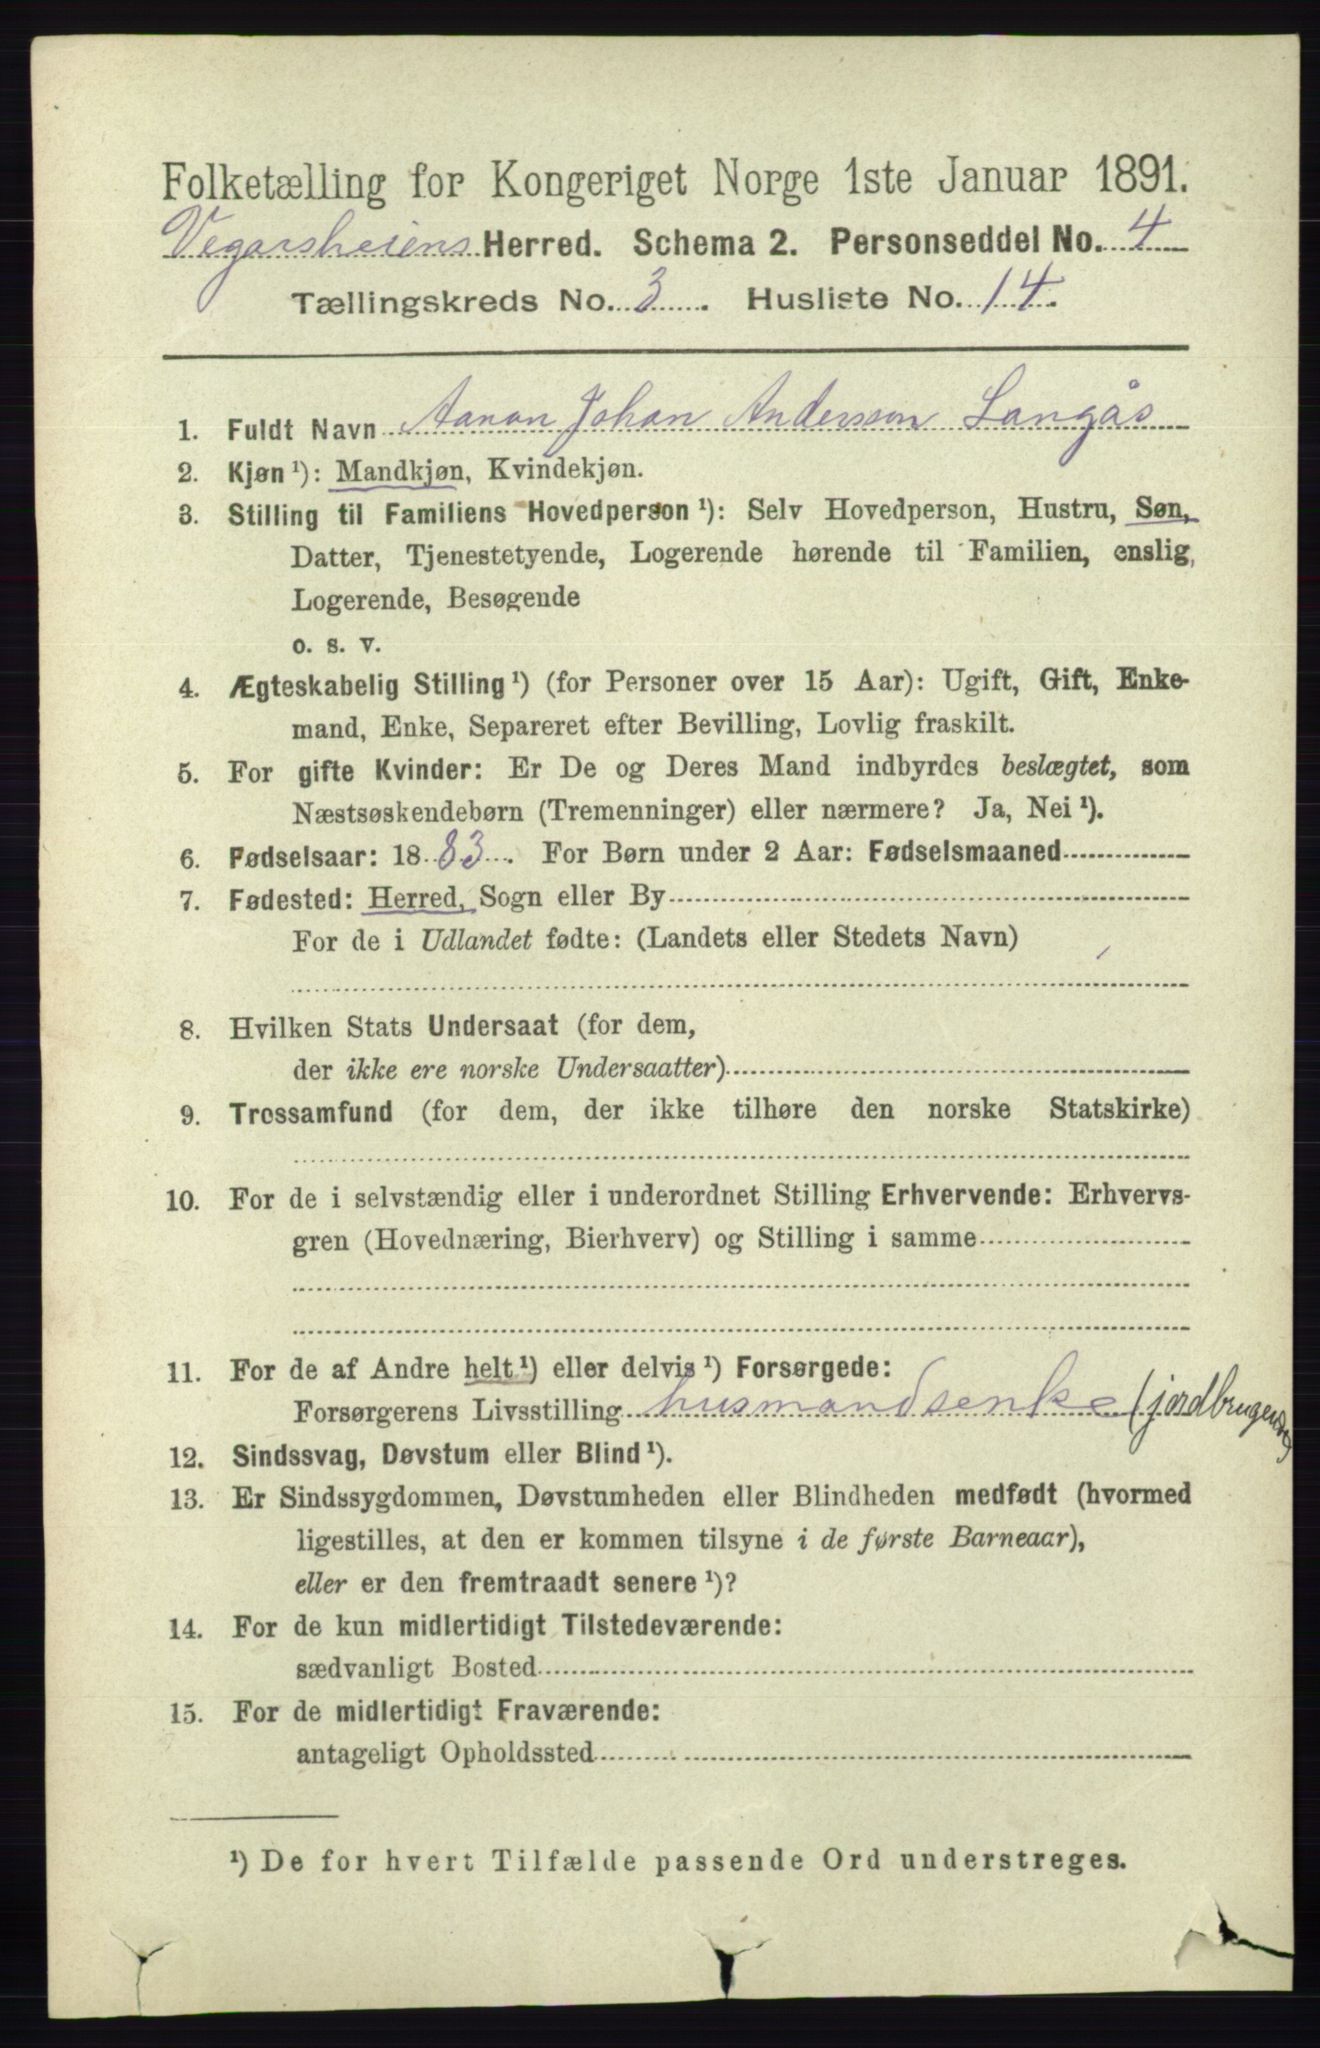 Folketælling for Kongeriget Norge 1ste Januar 1891.
Vegarsheiens Herred. Schema 2. Personseddel No. 4
Tællingskreds No. 3. Husliste No. 14.
1. Fuldt Navn Aanon Johan Andersson Langås
2. Kjøn ¹): Mandkjøn, Kvindekjøn.
3. Stilling til Familiens Hovedperson ¹): Selv Hovedperson, Hustru, Søn,
Datter, Tjenestetyende, Logerende hørende til Familien, enslig
Logerende, Besøgende
o. s. v.
4. Ægteskabelig Stilling ¹) (for Personer over 15 Aar): Ugift, Gift, Enke-
mand, Enke, Separeret efter Bevilling, Lovlig fraskilt.
5. For gifte Kvinder: Er De og Deres Mand indbyrdes beslægtet, som
Næstsøskendebørn (Tremenninger) eller nærmere? Ja, Nei ¹).
6. Fødselsaar: 1883. For Børn under 2 Aar: Fødselsmaaned
7. Fødested: Herred, Sogn eller By
For de i Udlandet fødte: (Landets eller Stedets Navn)
8. Hvilken Stats Undersaat (for dem,
der ikke ere norske Undersaatter)
9. Trossamfund (for dem, der ikke tilhøre den norske Statskirke)
10. For de i selvstændig eller i underordnet Stilling Erhvervende: Erhvervs-
gren (Hovednæring, Bierhverv) og Stilling i samme
11. For de af Andre helt ¹) eller delvis ¹) Forsørgede:
Forsørgerens Livsstilling husmandsenke (jordbrugende)
12. Sindssvag, Døvstum eller Blind ¹).
13. Er Sindssygdommen, Døvstumheden eller Blindheden medfødt (hvormed
ligestilles, at den er kommen tilsyne i de første Barneaar),
eller er den fremtraadt senere ¹)?
14. For de kun midlertidigt Tilstedeværende:
sædvanligt Bosted
15. For de midlertidigt Fraværende:
antageligt Opholdssted
¹) De for hvert Tilfælde passende Ord understreges.